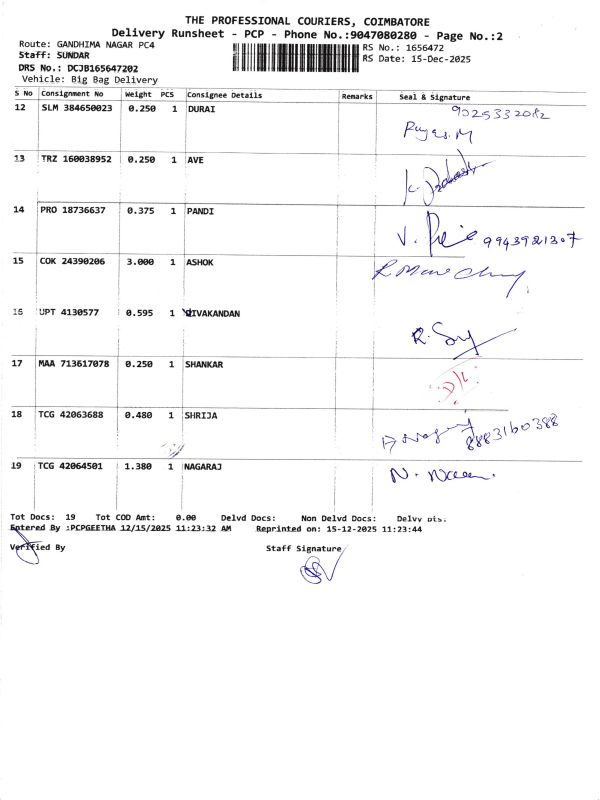 THE PROFESSIONAL COURIERS, COIMBATORE
Delivery Runsheet - PCP - Phone No.:9047080280 - Page No.:2
Route: GANDHIMA NAGAR PC4 RS No.: 1656472
Staff: SUNDAR RS Date: 15-Dec-2025
DRS No.: DCJB165647202
Vehicle: Big Bag Delivery
S No Consignment No Weight PCS Consignee Details Remarks Seal & Signature
12 SLM 384650023 0.250 1 DURAI 9025332082
13 TRZ 160038952 0.250 1 AVE
14 PRO 18736637 0.375 1 PANDI
V. 9943921307
15 COK 24390206 3.000 1 ASHOK
16 UPT 4130577 0.595 1 VIVAKANDAN
R.
17 MAA 713617078 0.250 1 SHANKAR
D/L
18 TCG 42063688 0.480 1 SHRIJA
8883160388
19 TCG 42064501 1.380 1 NAGARAJ N.
Tot Docs: 19 Tot COD Amt: 0.00 Delvd Docs: Non Delvd Docs: Delvy Dts:
Entered By :PCPGEETHA 12/15/2025 11:23:32 AM Reprinted on: 15-12-2025 11:23:44
Verified By Staff Signature